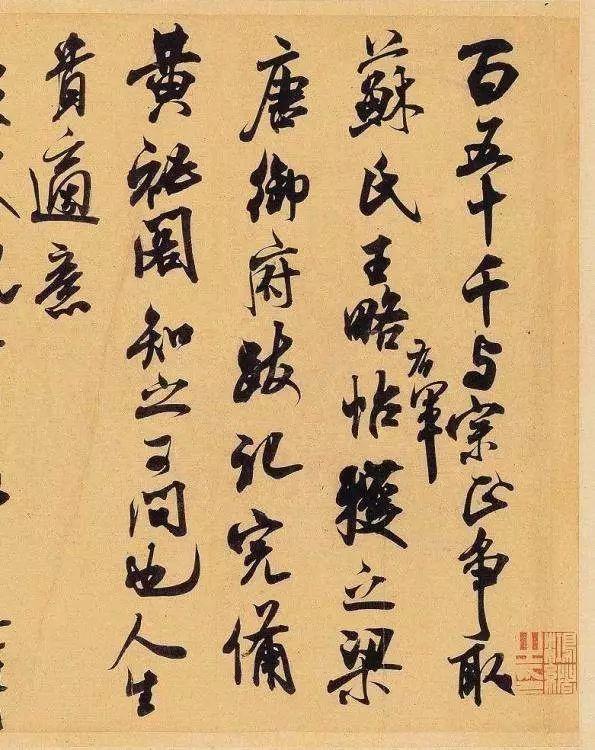 百五十千与宗正争取
蘇氏王略帖獲之梁
右軍
唐御府跋記完備
黄秘閣知之可問也人生
貴適意